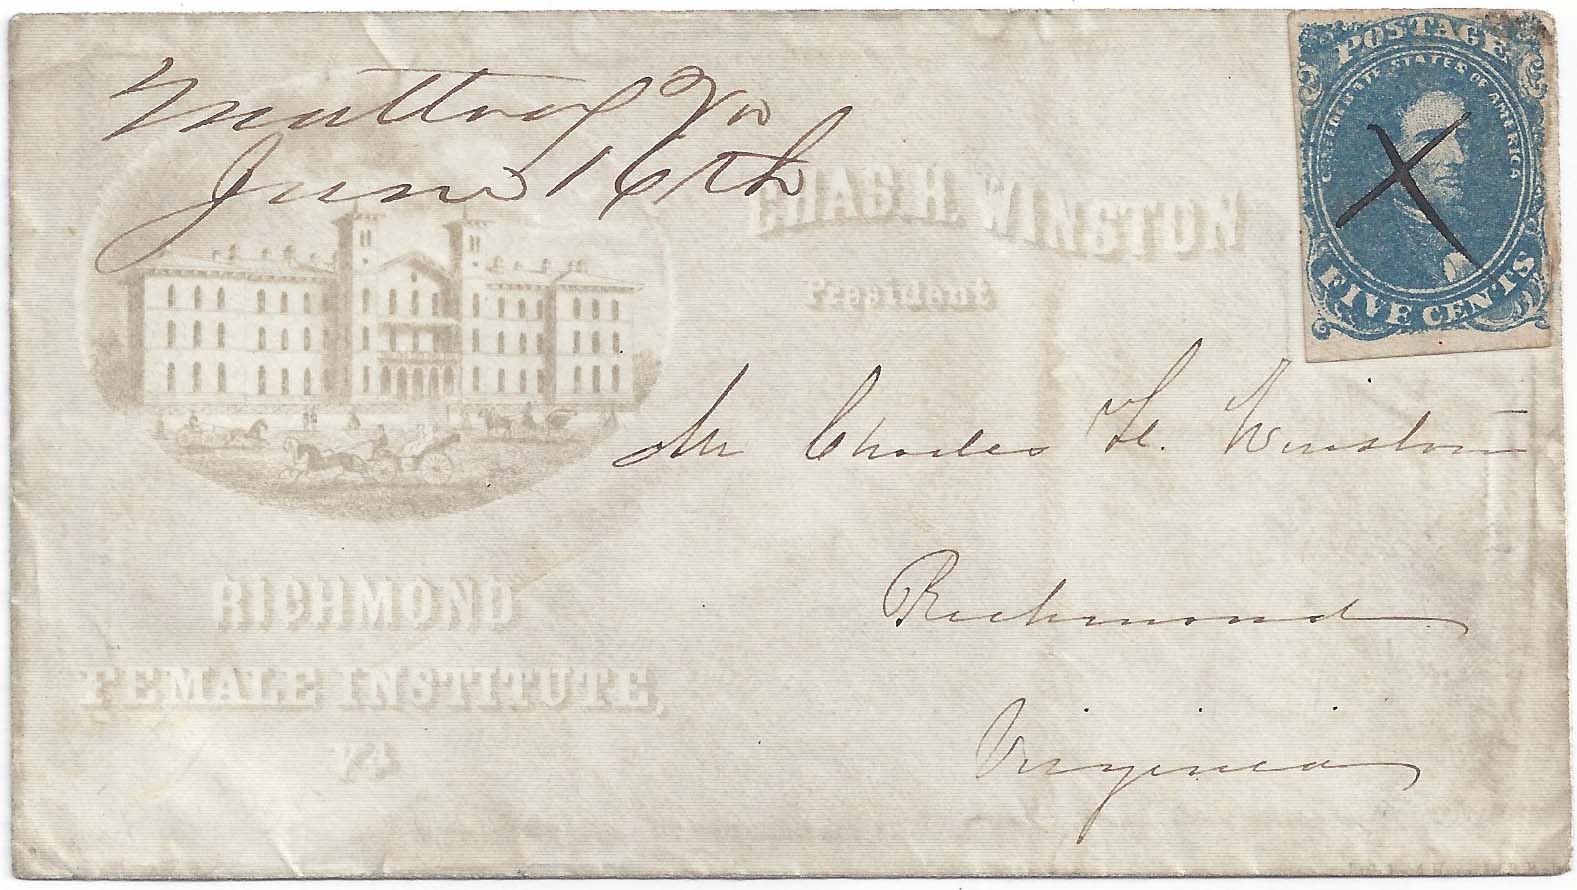 Mattoax Va
June 16th
POSTAGE
CONFEDERATE STATES OF AMERICA
FIVE CENTS
CHAS. H. WINSTON
President
Mr Charles H. Winston
Richmond
Virginia
RICHMOND
FEMALE INSTITUTE,
VA